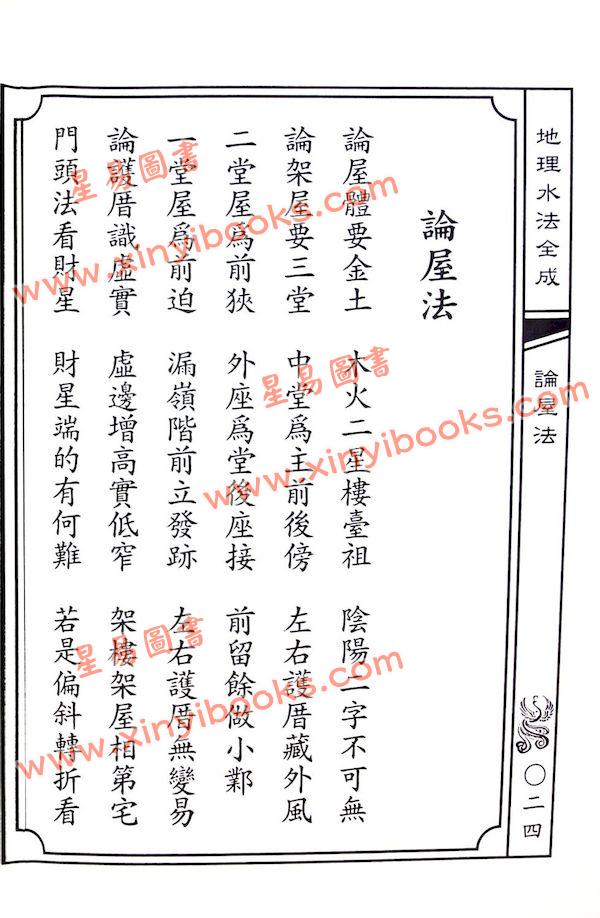 地理水法全成
論屋法
〇二四
論屋法
論屋體要金土 木火二星樓臺祖 陰陽二字不可無
論架屋要三堂 中堂爲主前後傍 左右護厝藏外風
二堂屋爲前狹 外座爲堂後座接 前留餘做小鄴
一堂屋爲前迫 漏嶺階前立發跡 左右護厝無變易
論護厝識虛實 虛邊增高實低窄 架樓架屋相第宅
門頭法看財星 財星端的有何難 若是偏斜轉折看
星易圖書
www.xinyibooks.com
星易圖書
www.xinyibooks.com
星易圖書
www.xinyibooks.com